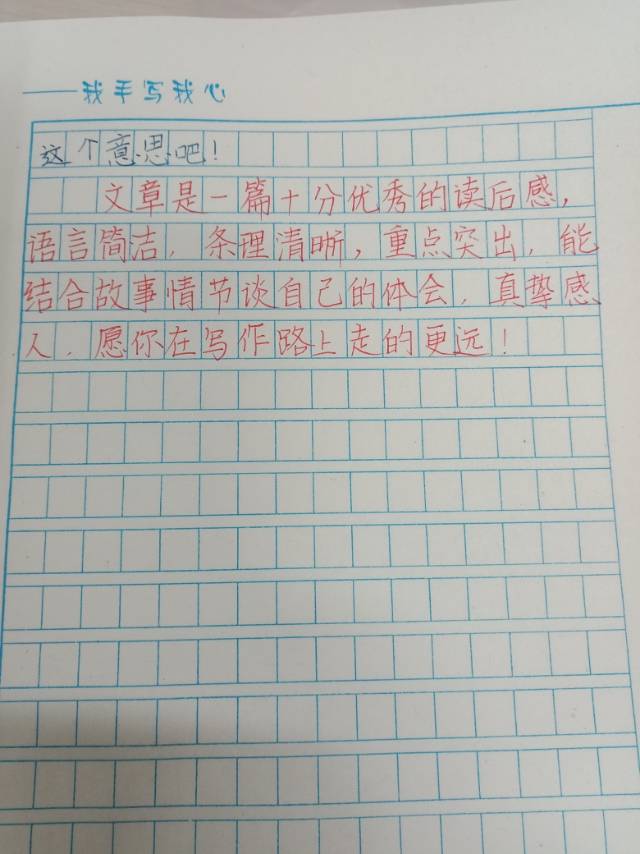 ——我手写我心
这个意思吧!
文章是一篇十分优秀的读后感,
语言简洁,条理清晰,重点突出,能
结合故事情节谈自己的体会,真挚感
人,愿你在写作路上走的更远!